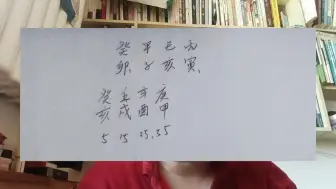 癸 辛 己 丙
卯 子 亥 寅
癸 壬 辛 庚
亥 戌 酉 申
5 15 25.35